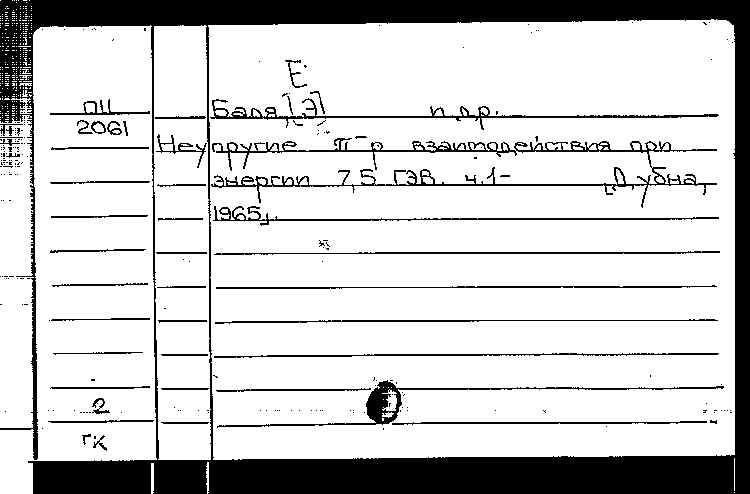 Е.
ПЦ Баля, [Э] и др.
2061
Неупругие π⁻р взаимодействия при
энергии 7,5 ГЭВ. ч.1-  [Дубна,
1965].
2
ГК